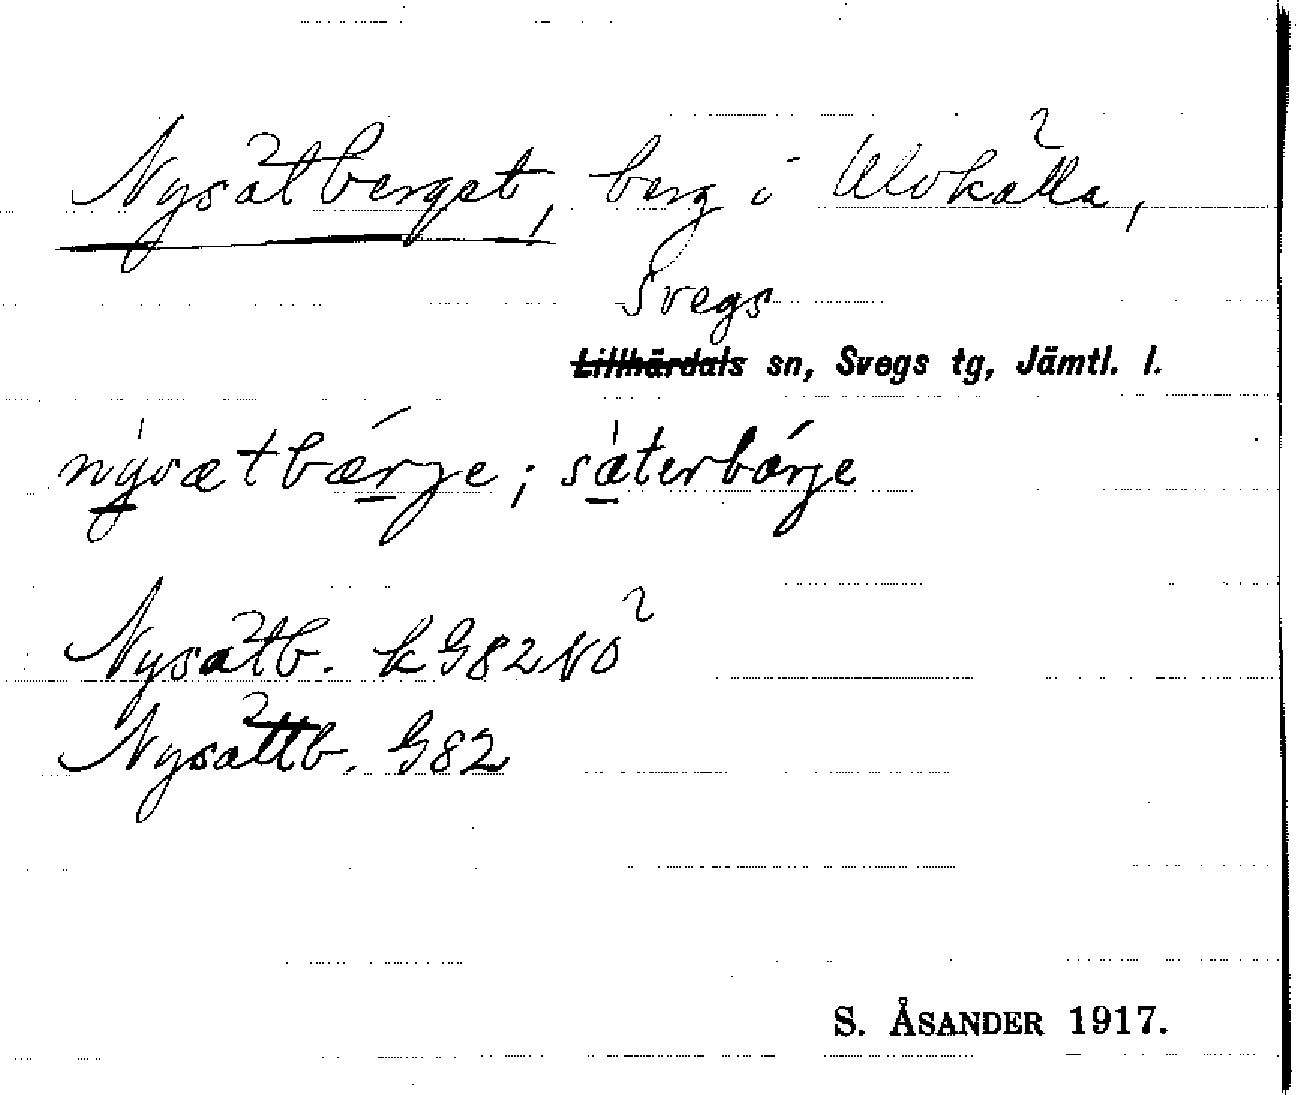 Nysätberget, berg i Ulvkälla,
Svegs
Lillhärdals sn, Svegs tg, Jämtl. l.
nysætbærje; säterbärje
Nysätb. k G82NO
Nysättb. G82
S. ÅSANDER 1917.